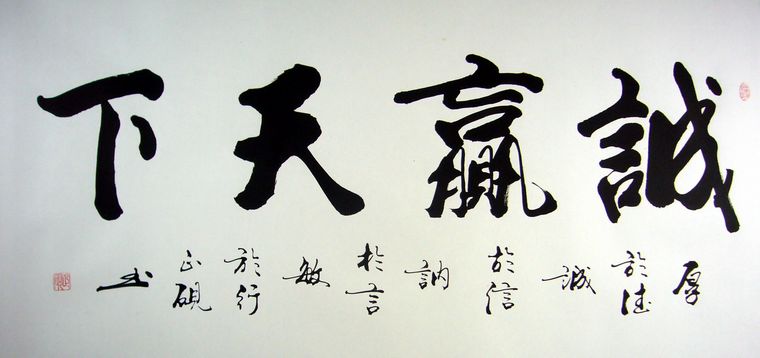 誠贏天下
厚於德誠於信訥於言敏於行正硯书